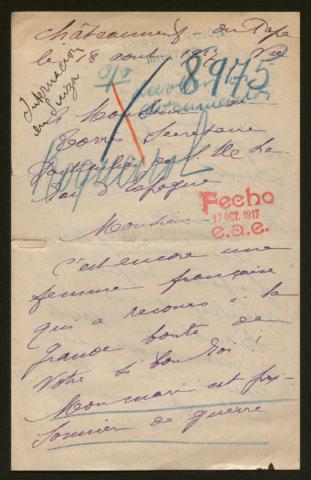 Châteauneuf du Pape
le 18 aout 1917
8975
Internacion
en Suiza
A Monsieur
Torres Secrétaire
Particulier de S. M. Le
Roi d'Espagne
Fecho
17 OCT. 1917
e.a.e.
Monsieur
C'est encore une
femme française
qui a recours à la
grande bonté de
Votre si bon Roi !
Mon mari est pri-
sonnier de guerre